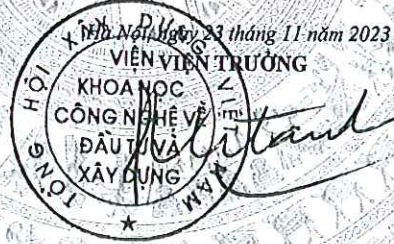 Hà Nội, ngày 23 tháng 11 năm 2023
VIỆN TRƯỞNG
TỔNG HỘI XÂY DỰNG VIỆT NAM
VIỆN
KHOA HỌC
CÔNG NGHỆ VỀ
ĐẦU TƯ VÀ
XÂY DỰNG